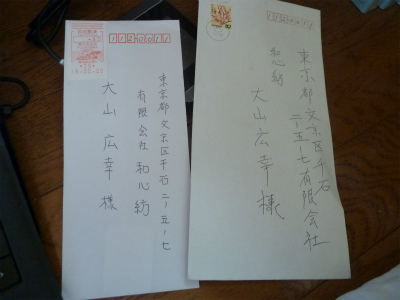 東京都文京区千石二ー五ー七
有限会社 和心紡
大山広幸様
東京都文京区千石
二ー五ー七有限会社
和心紡
大山広幸様